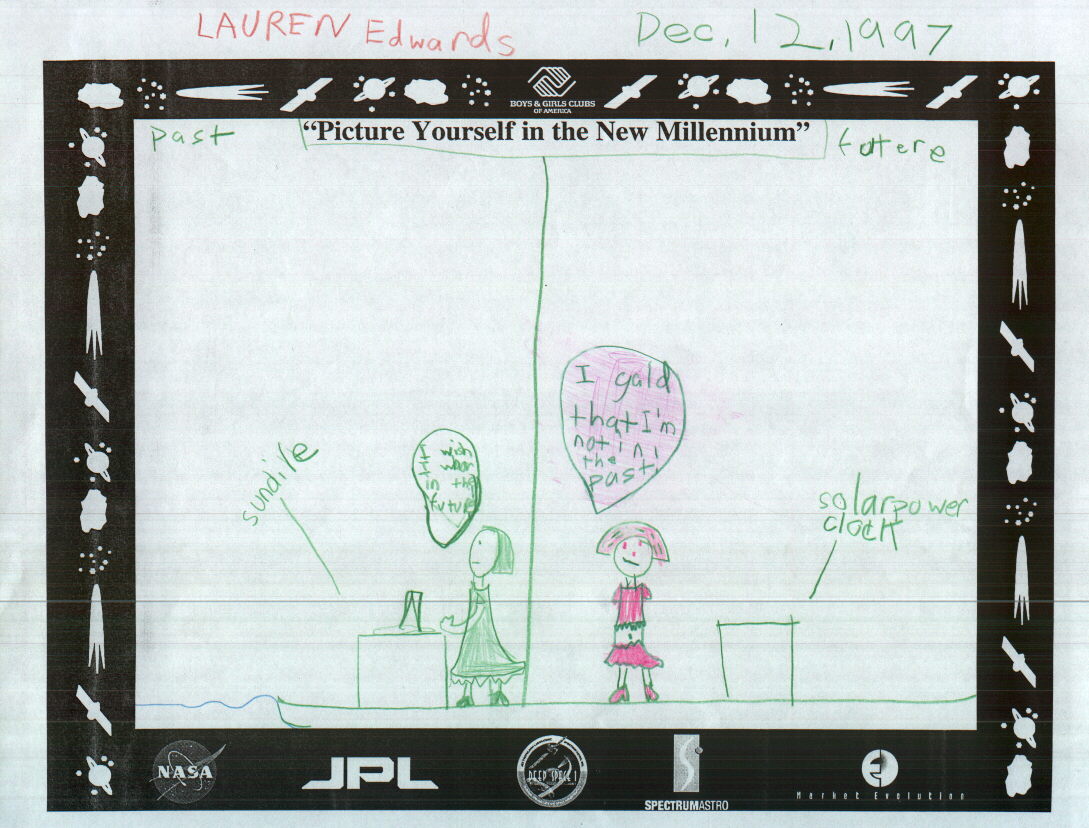 LAUREN Edwards
Dec, 12, 1997
BOYS & GIRLS CLUBS
OF AMERICA
past
"Picture Yourself in the New Millennium"
futere
I gald
that I'm
not in
the
past.
I wish
I wher
in the
future
sundile
solarpower
clock
NASA
JPL
DEEP SPACE 1
SPECTRUMASTRO
Market Evolution